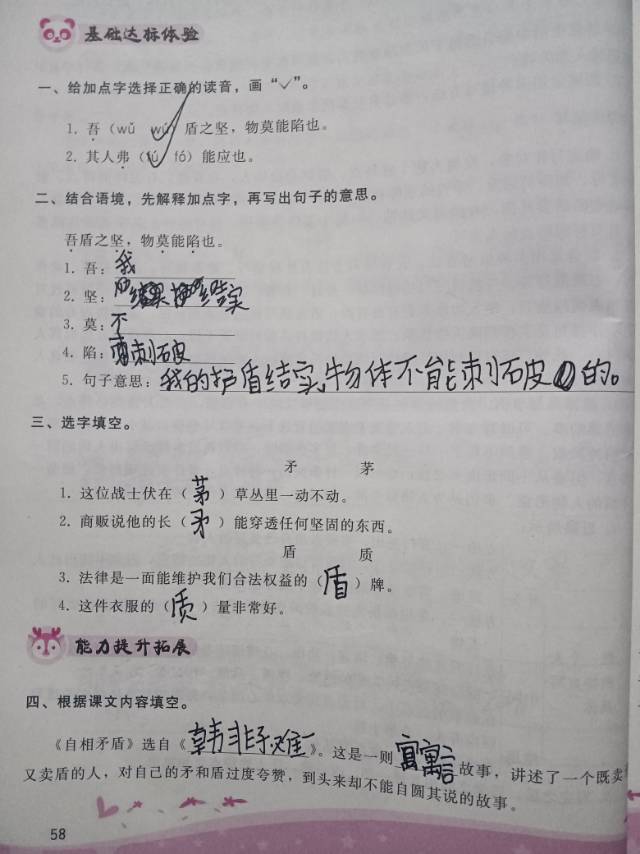 基础达标体验
一、给加点字选择正确的读音，画“✓”。
1. 吾（wǔ wú）盾之坚，物莫能陷也。
2. 其人弗（fú fó）能应也。
二、结合语境，先解释加点字，再写出句子的意思。
吾盾之坚，物莫能陷也。
1. 吾：我
2. 坚：结实
3. 莫：不
4. 陷：刺破
5. 句子意思：我的护盾结实，物体不能刺破的。
三、选字填空。
矛 茅
1. 这位战士伏在（茅）草丛里一动不动。
2. 商贩说他的长（矛）能穿透任何坚固的东西。
盾 质
3. 法律是一面能维护我们合法权益的（盾）牌。
4. 这件衣服的（质）量非常好。
能力提升拓展
四、根据课文内容填空。
《自相矛盾》选自《韩非子难一》。这是一则寓言故事，讲述了一个既卖
又卖盾的人，对自己的矛和盾过度夸赞，到头来却不能自圆其说的故事。
58